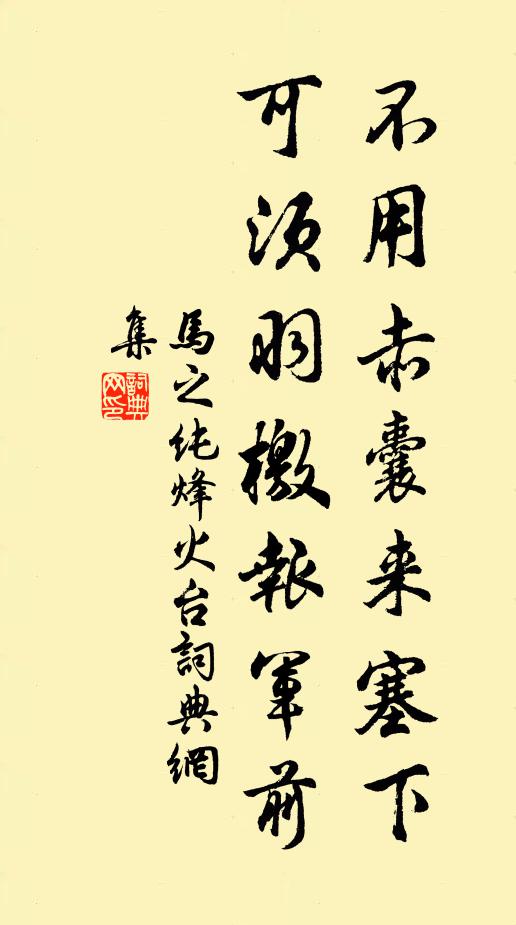 不用赤囊来塞下
可须羽檄報軍前
馬之纯烽火台詞典網
集
詞典網印